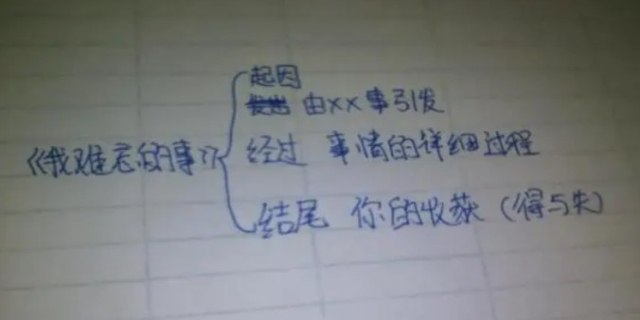 起因
由××事引发
《我难忘的事》
经过 事情的详细过程
结尾 你的收获（得与失）